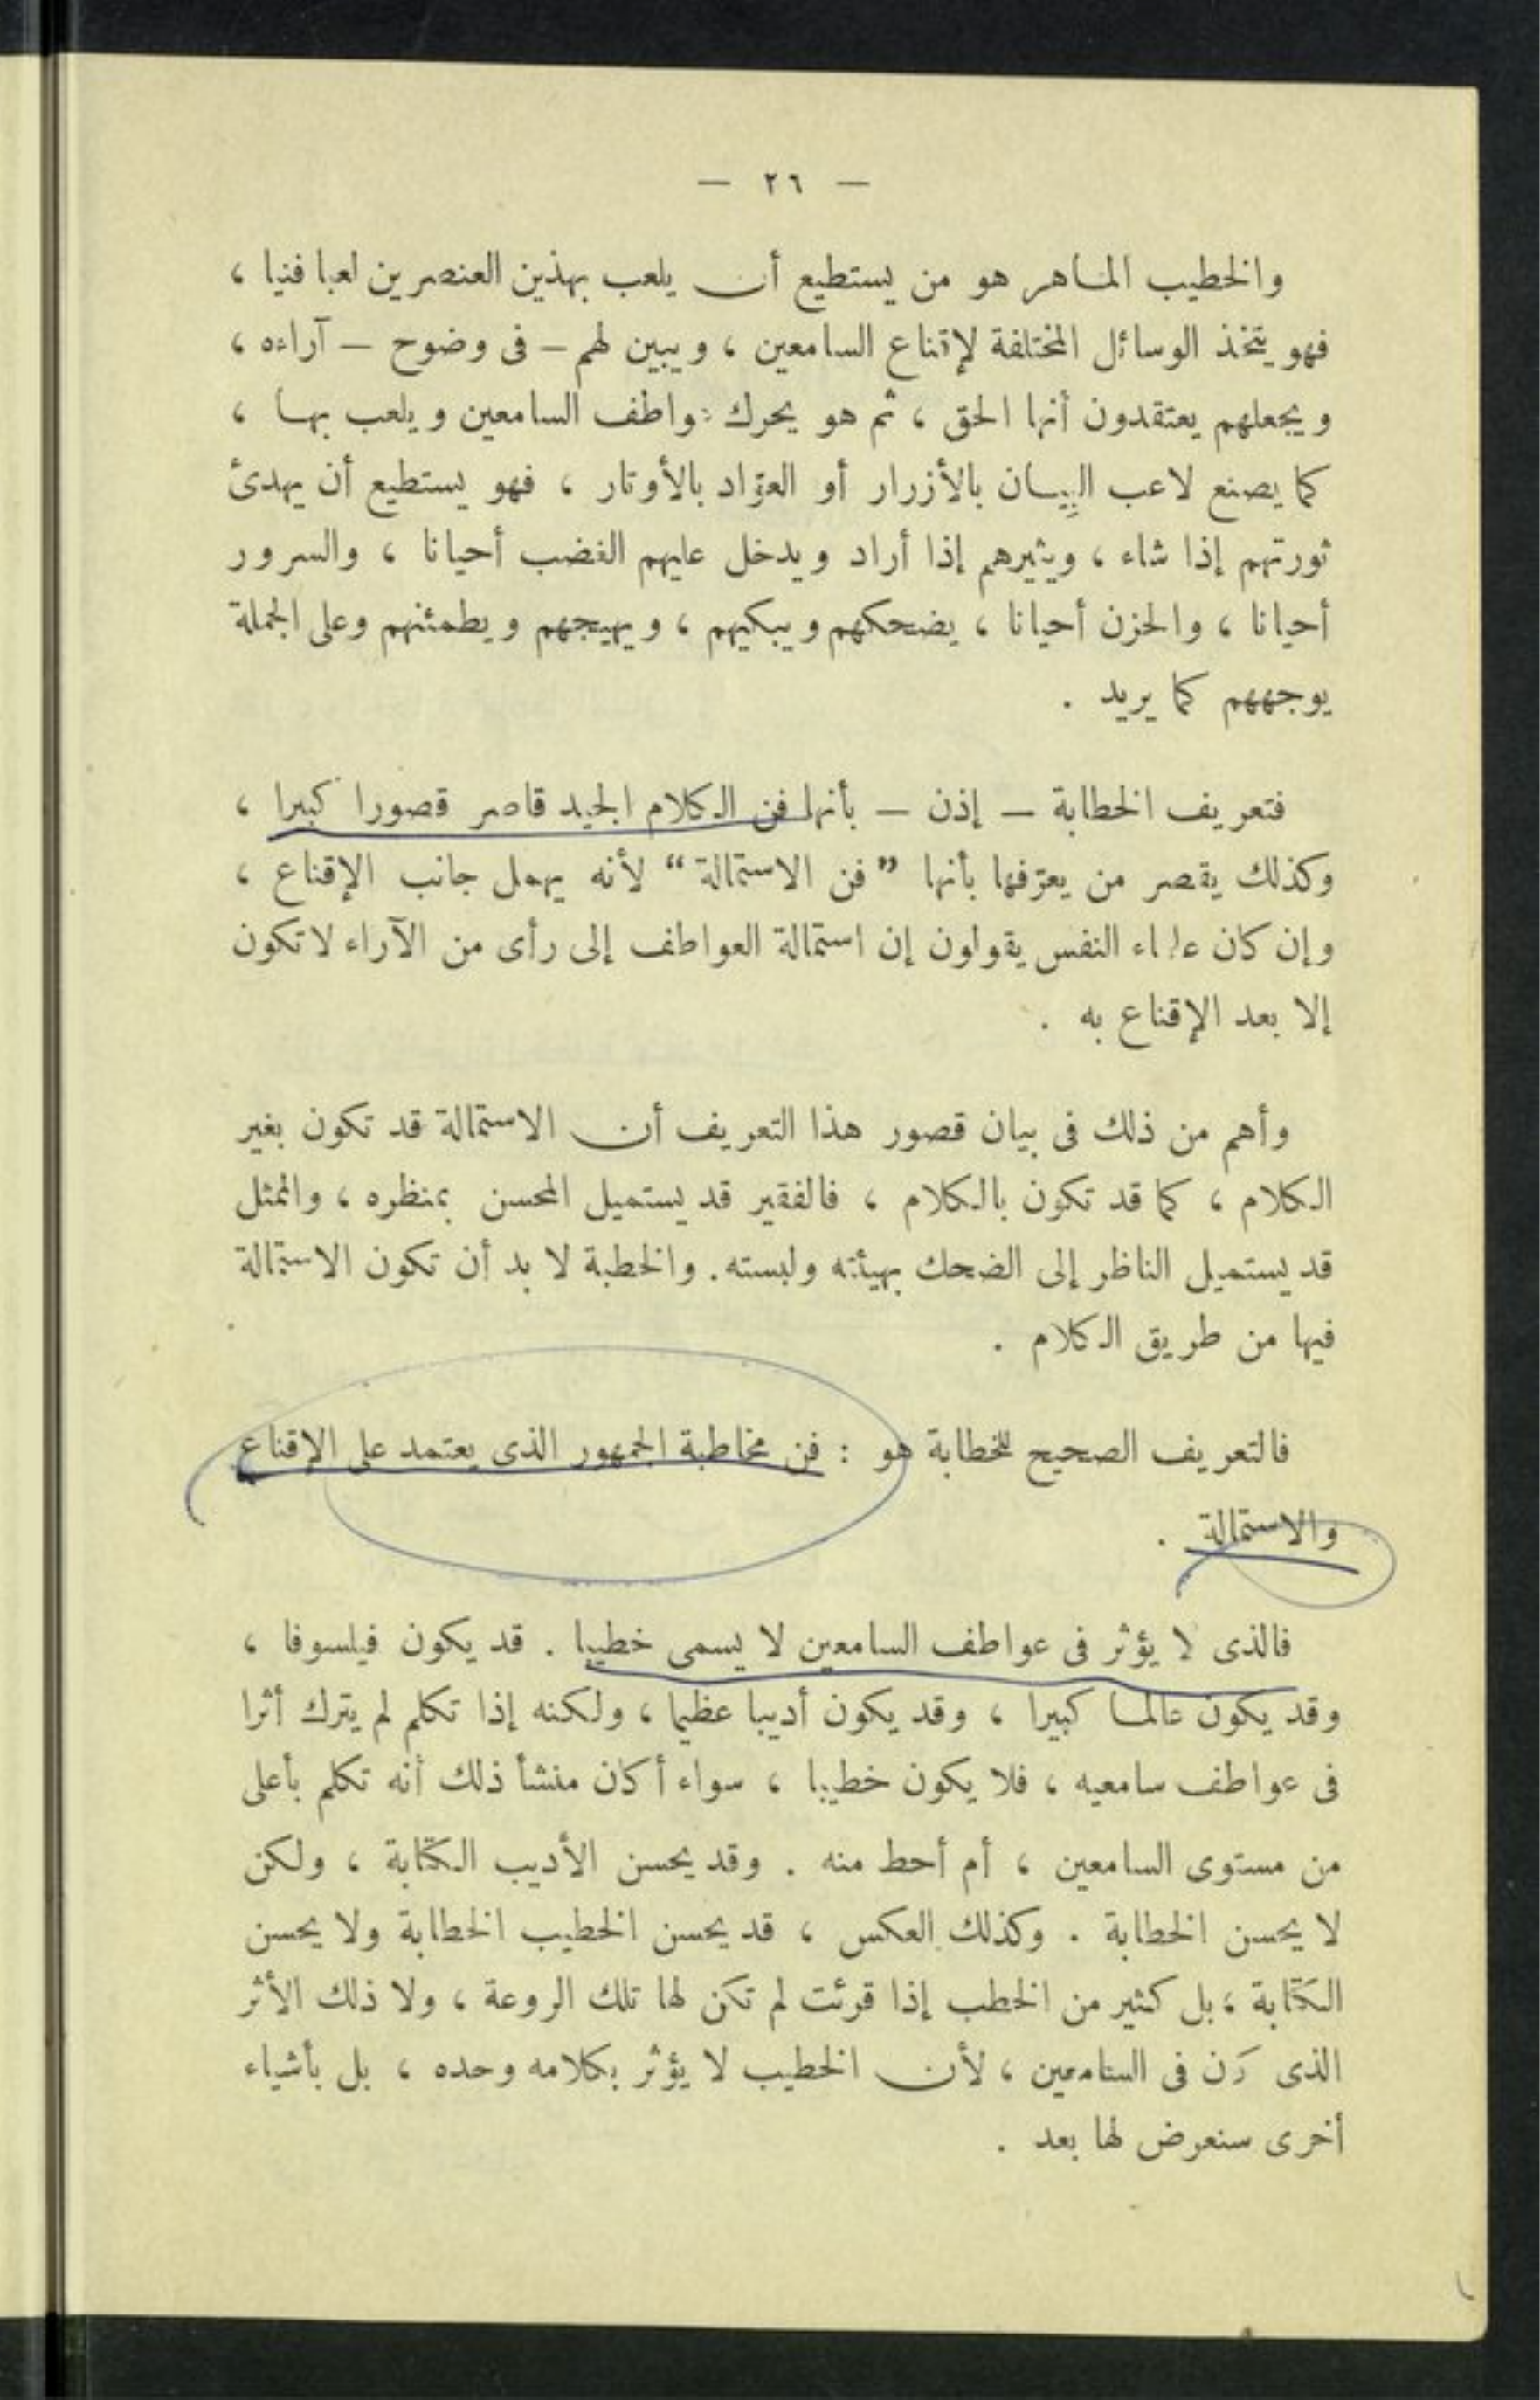 — ٢٦ —
والخطيب الماهر هو من يستطيع أن يلعب بهذين العنصرين لعبا فنيا ،
فهو يتخذ الوسائل المختلفة لإقناع السامعين ، ويبين لهم — فى وضوح — آراءه ،
ويجعلهم يعتقدون أنها الحق ، ثم هو يحرك عواطف السامعين ويلعب بها ،
كما يصنع لاعب البِيان بالأزرار أو العوّاد بالأوتار ، فهو يستطيع أن يهدئ
ثورتهم إذا شاء ، ويثيرهم إذا أراد ويدخل عليهم الغضب أحيانا ، والسرور
أحيانا ، والحزن أحيانا ، يضحكهم ويبكيهم ، ويهيجهم ويطمئنهم وعلى الجملة
يوجههم كما يريد .
فتعريف الخطابة — إذن — بأنها فن الكلام الجيد قاصر قصورا كبيرا ،
وكذلك يقصر من يعرّفها بأنها ” فن الاستمالة “ لأنه يهمل جانب الإقناع ،
وإن كان علماء النفس يقولون إن استمالة العواطف إلى رأى من الآراء لا تكون
إلا بعد الإقناع به .
وأهم من ذلك فى بيان قصور هذا التعريف أن الاستمالة قد تكون بغير
الكلام ، كما قد تكون بالكلام ، فالفقير قد يستميل المحسن بمنظره ، والممثل
قد يستميل الناظر إلى الضحك بهيئته ولبسته . والخطبة لا بد أن تكون الاستمالة
فيها من طريق الكلام .
فالتعريف الصحيح للخطابة هو : فن مخاطبة الجمهور الذى يعتمد على الإقناع
والاستمالة .
فالذى لا يؤثر فى عواطف السامعين لا يسمى خطيبا . قد يكون فيلسوفا ،
وقد يكون عالما كبيرا ، وقد يكون أديبا عظيما ، ولكنه إذا تكلم لم يترك أثرا
فى عواطف سامعيه ، فلا يكون خطيبا ، سواء أكان منشأ ذلك أنه تكلم بأعلى
من مستوى السامعين ، أم أحط منه . وقد يحسن الأديب الكتابة ، ولكن
لا يحسن الخطابة . وكذلك العكس ، قد يحسن الخطيب الخطابة ولا يحسن
الكتابة ، بل كثير من الخطب إذا قرئت لم تكن لها تلك الروعة ، ولا ذلك الأثر
الذى كان فى السامعين ، لأن الخطيب لا يؤثر بكلامه وحده ، بل بأشياء
أخرى سنعرض لها بعد .